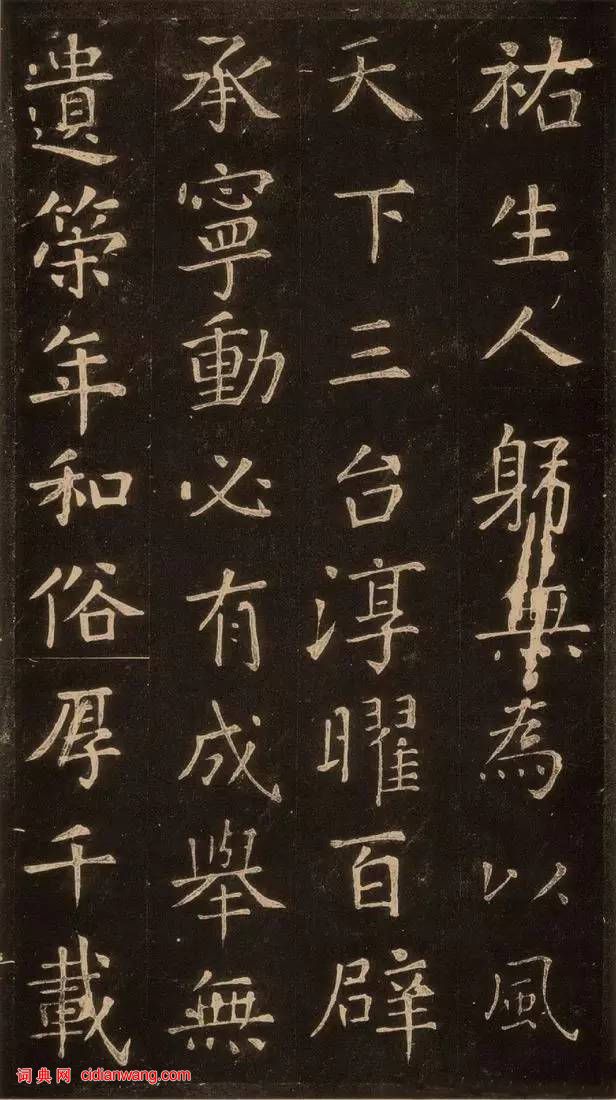 祐生人躬無為以風
天下三台淳曜百辟
承寧動必有成舉無
遺策年和俗厚千載
词典网 cidianwang.com